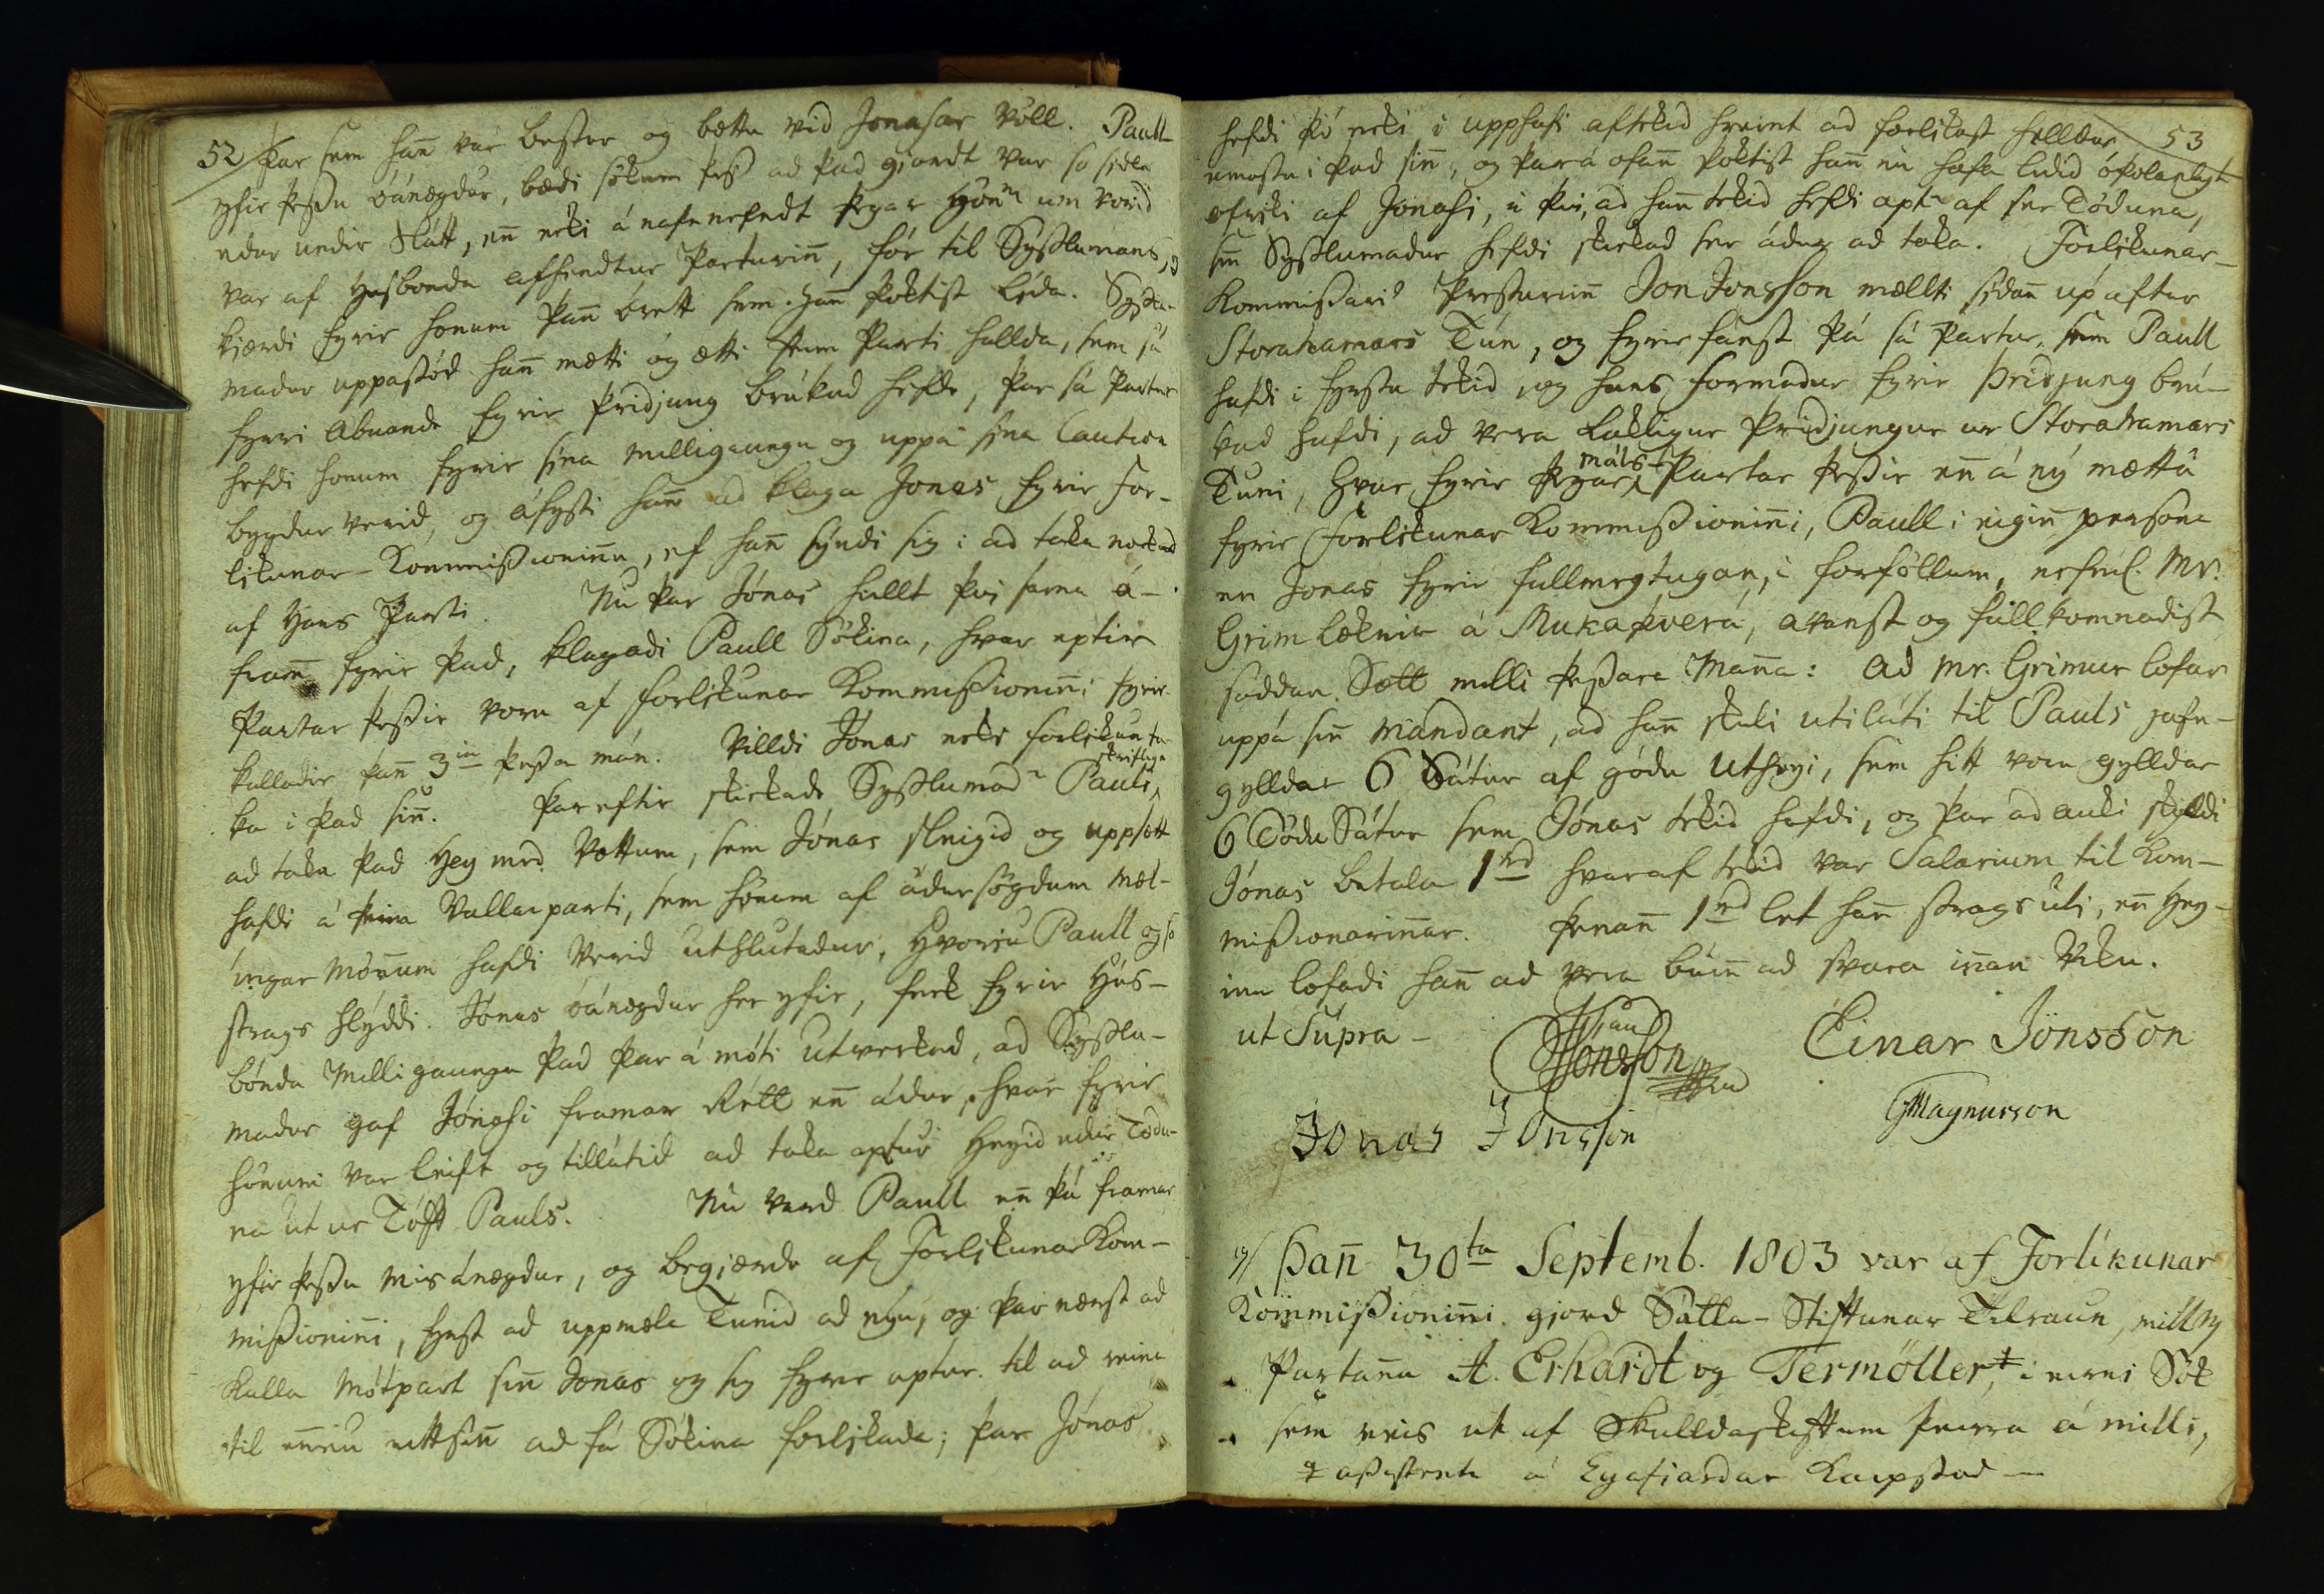 52
þar sem hañ var bestur og bætta vid Jonasar Völl. Paull
yfir þessu óánægdur, bædi sökum þess ad þad giördt var so sidla
edur undir Slátt, eñ ecki ánafnefndt þegar honum um vorid
var af Husbonda afhendtur Parturiñ, fór til Sysslumans, og
kjærdi fyrir honum þañ órett sem hañ þóktist lída. Sysslu-
madur uppástód hañ mætti og ætti þeim Parti hallda, sem sá
fyrri Abuande fyrir þridjung brúkad hefde, þar sá Partur
hefdi honum fyrir sína milligaungu og uppá sína Caution
bygdur verid, og áhysti hañ ad klaga Jonas fyrir For-
likunar-Kommissioniñe, ef hañ syndi sig i ad taka nockud
af Hans Parti. Nu þar Jónas hellt þvi sama á-
fram fyrir þad, klagadi Paull Sökina, hvar eptir
Partar þessir voru af Forlikunar Kommissioniñi fyrir
kalladir þañ 3ia þessa mán. Villdi Jónas ecki forlikun ta-
ka i þad siñ. Þareftir skickade Sysslumadr Pauli skriftlega
ad taka þad Hey med Vottum, sem Jónas sleigid og uppsett
hafdi á þeim Vallarparti, sem hönum af ádursögdum Mæl-
ingar Möñum hafdi verid uthlutadur, hvoriu Paull og so
strags hlýddi. Jónas óánægdur her yfir, feck fyrir Hús-
bónda Milligaungu þad þar á móti Utverkad, ad Sysslu-
madur gaf Jónasi framar Rétt eñ ádur, hvar fyrir
hönum var leift og tillátid ad taka aptur Heyid edur Tödu-
na út úr Tóft Pauls. Nu vard Paull eñ þá framar
yfir þessu misánægdur, og begiærde af Forlikunar Kom-
missioniñi, fyrst ad uppmæla Tunid ad nýu, og þar nærst ad
kalla Mótpart siñ Jonas og sig fyrir aptur til ad reina
til eñ eitt siñ ad fá Sökina forlikada; þar Jónas
53
hefdi þó ecki i upphafi aftekid hreint ad forlikast helldur
umastu i þad siñ, og þar á ofañ þóktist hañ nú hafa lidid óþolanlegt
ofriki af Jonasi, i þvi, ad hañ tekid hefdi aptr af ser Töduna,
sem Sysslumadur hefdi skickad ser ádur ad taka. Forlikunar-
Kommissari Presturiñ Jon Jonsson mællti sidañ up aftur
Storahamars Tún, og fyrir fanst þá sá Partur, sem Paull
hafdi i fyrstu tekid, og hans formadur fyrir þridjung brú-
kad hafdi, ad vera laukligur Þridjungur ur Storahamars
Tuni, hvar fyrir þegar máls-Partar þessir eñ á ný mættu
fyrir Forlikunar Kommissioniñi, Paull i eigiñ persónu
en Jonas fyrir fullmegtugan, i forföllum, nefnil. Mr.
Grim læknir á Mukaþverá, avanst og fullkomnadist
soddan Sætt milli þessara Maña: Ad Mr. Grimur lofar
uppá siñ Mandant, ad hañ skuli utiláti til Pauls jafn-
gylldar 6 Sátur af gódu Utheyi, sem hitt voru gylldar
6 Tödu Sátur sem Jónas tekid hafdi, og þar ad auki skyldi
Jónas betala 1rd hvaraf tekid var Salarium til Kom-
missionariñar. Þenañ 1rd let hañ strags úti, eñ Hey-
inu lofadi hañ ad vera búiñ ad svara iñan Viku.
ut Supra - Jón Jónsson Einar Jónsson
Jonas Jónsson GMagnusson
19/ Þañ 30ta Septemb. 1803 var af Forlíkunar
Kommissioniñi gjord Sátta-Stiftunar Tilraun, milli
Partaña A. Erhardt og Termöller,‡ i eirni Sök
sem reis ut af Skulldaskiftum þeirra á milli,
‡ assistente á Eyafiardar Kaupstad -